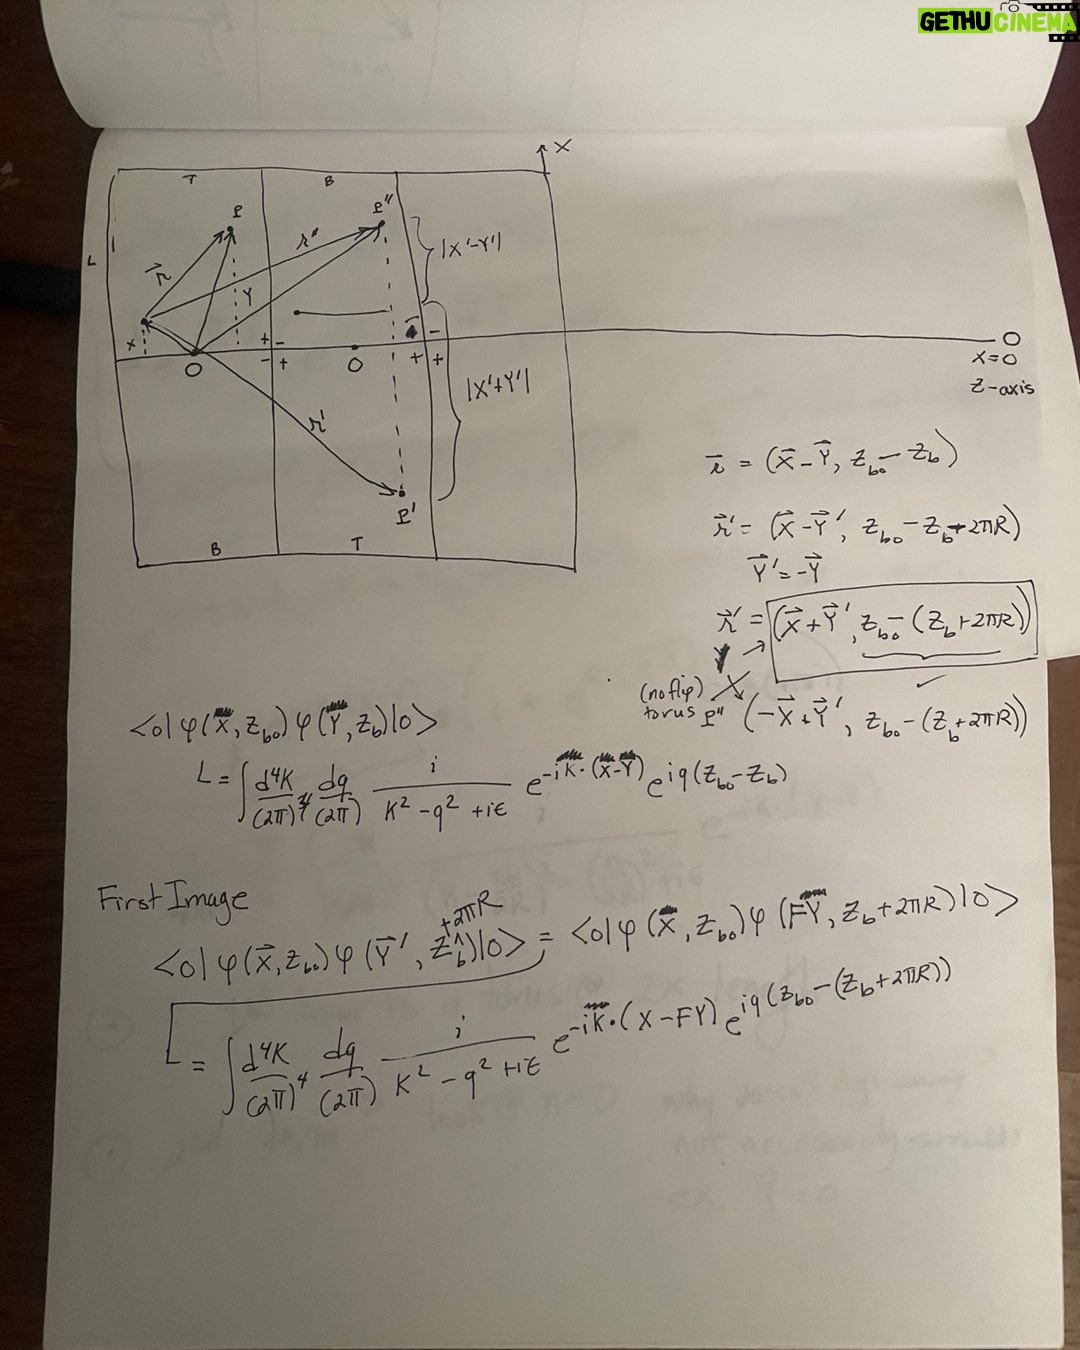 GETHUCINEMA
X
T
B
P
P''
r''
|X'-Y'|
L
r⃗
Y
x
+ -
- +
-
+ +
O
O
O
x=0
z-axis
|X'+Y'|
r'
P'
B
T
r⃗ = (X⃗-Y⃗, Z_b₀ - Z_b)
r⃗' = (X⃗-Y⃗', Z_b₀ - Z_b - 2πR)
Y⃗' = -Y⃗
r⃗' = (X⃗+Y⃗', Z_b₀ - (Z_b+2πR))
(no flip)
torus P'' (-X⃗+Y⃗', Z_b₀ - (Z_b+2πR))
<0|φ(X, Z_b₀)φ(Y, Z_b)|0>
L = ∫ d⁴K/(2π)⁴ dq/(2π) i/(K² - q² + iε) e^{-iK·(X-Y)} e^{iq(Z_b₀-Z_b)}
First Image
<0|φ(X⃗, Z_b₀)φ(Y⃗', Z_b^{+2πR})|0> = <0|φ(X, Z_b₀)φ(FY, Z_b+2πR)|0>
= ∫ d⁴K/(2π)⁴ dq/(2π) i/(K² - q² + iε) e^{-iK·(X-FY)} e^{iq(Z_b₀-(Z_b+2πR))}